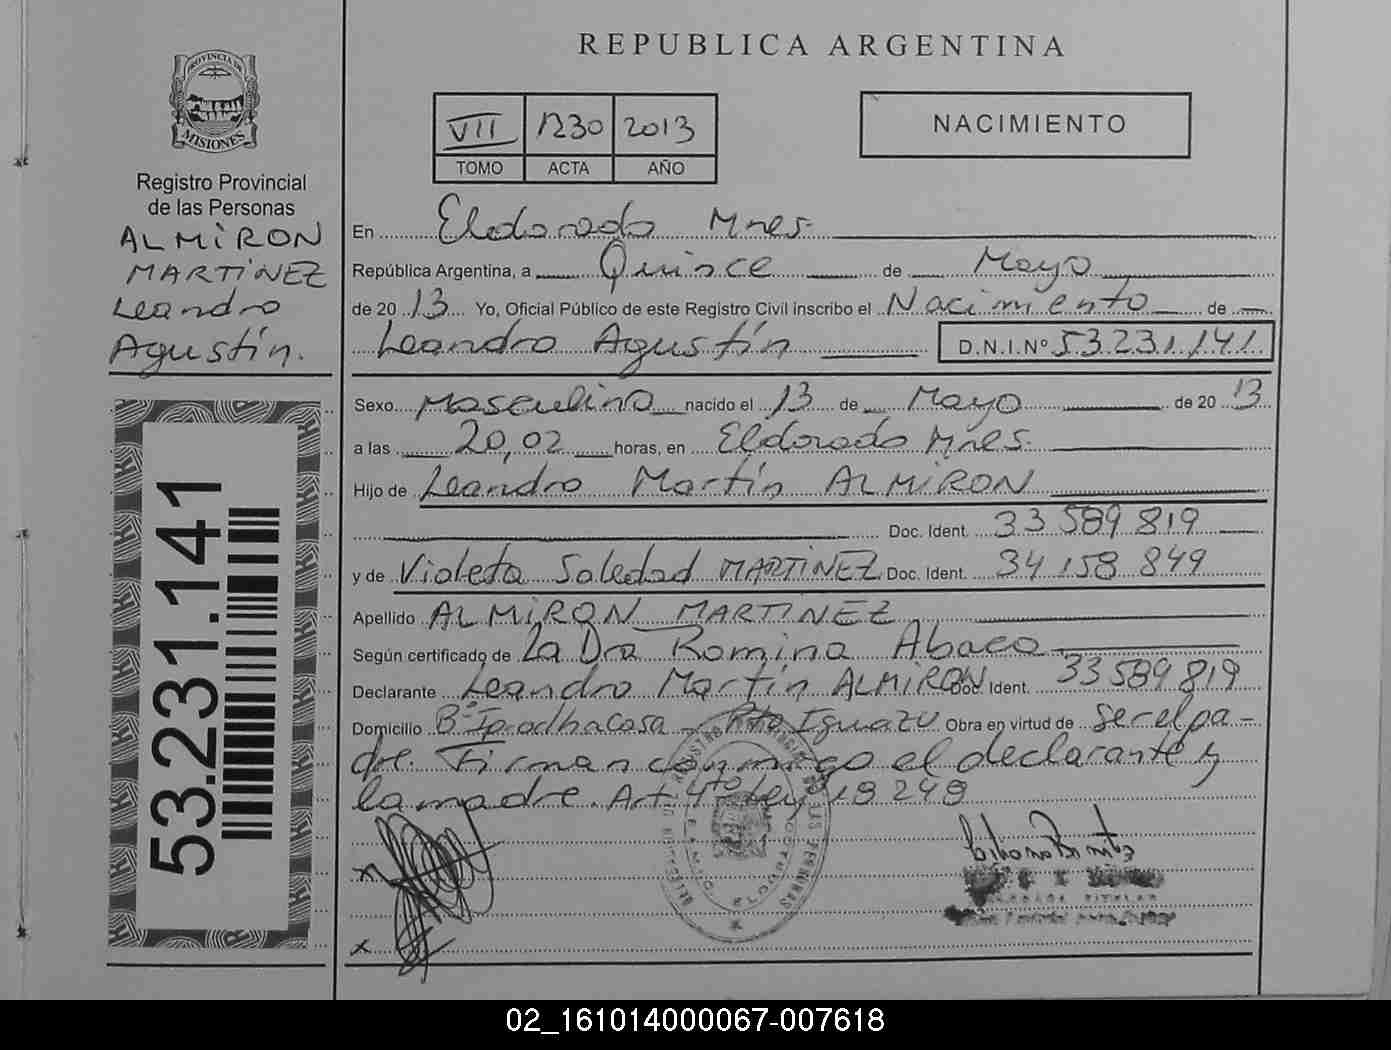 REPUBLICA ARGENTINA
PROVINCIA DE
MISIONES
Registro Provincial
de las Personas
ALMIRON
MARTINEZ
Leandro
Agustín.
53.231.141
VII 1230 2013
TOMO ACTA AÑO
NACIMIENTO
En Eldorado Mnes.
República Argentina, a Quince de Mayo
de 20 13 Yo, Oficial Público de este Registro Civil inscribo el Nacimiento de
Leandro Agustín D.N.I.Nº 53.231.141.
Sexo Masculino nacido el 13 de Mayo de 20 13
a las 20,02 horas, en Eldorado Mnes.
Hijo de Leandro Martín ALMIRON
Doc. Ident. 33 589 819
y de Violeta Soledad MARTINEZ Doc. Ident. 34 158 849
Apellido ALMIRON MARTINEZ
Según certificado de La Dra Romina Abaca
Declarante Leandro Martín ALMIRON Doc. Ident. 33 589 819
Domicilio Bº Pto Iguazu Obra en virtud de ser el pa-
dre. Firman conmigo el declarante y
la madre. Art 4to Ley 18 248
x
x
02_161014000067-007618